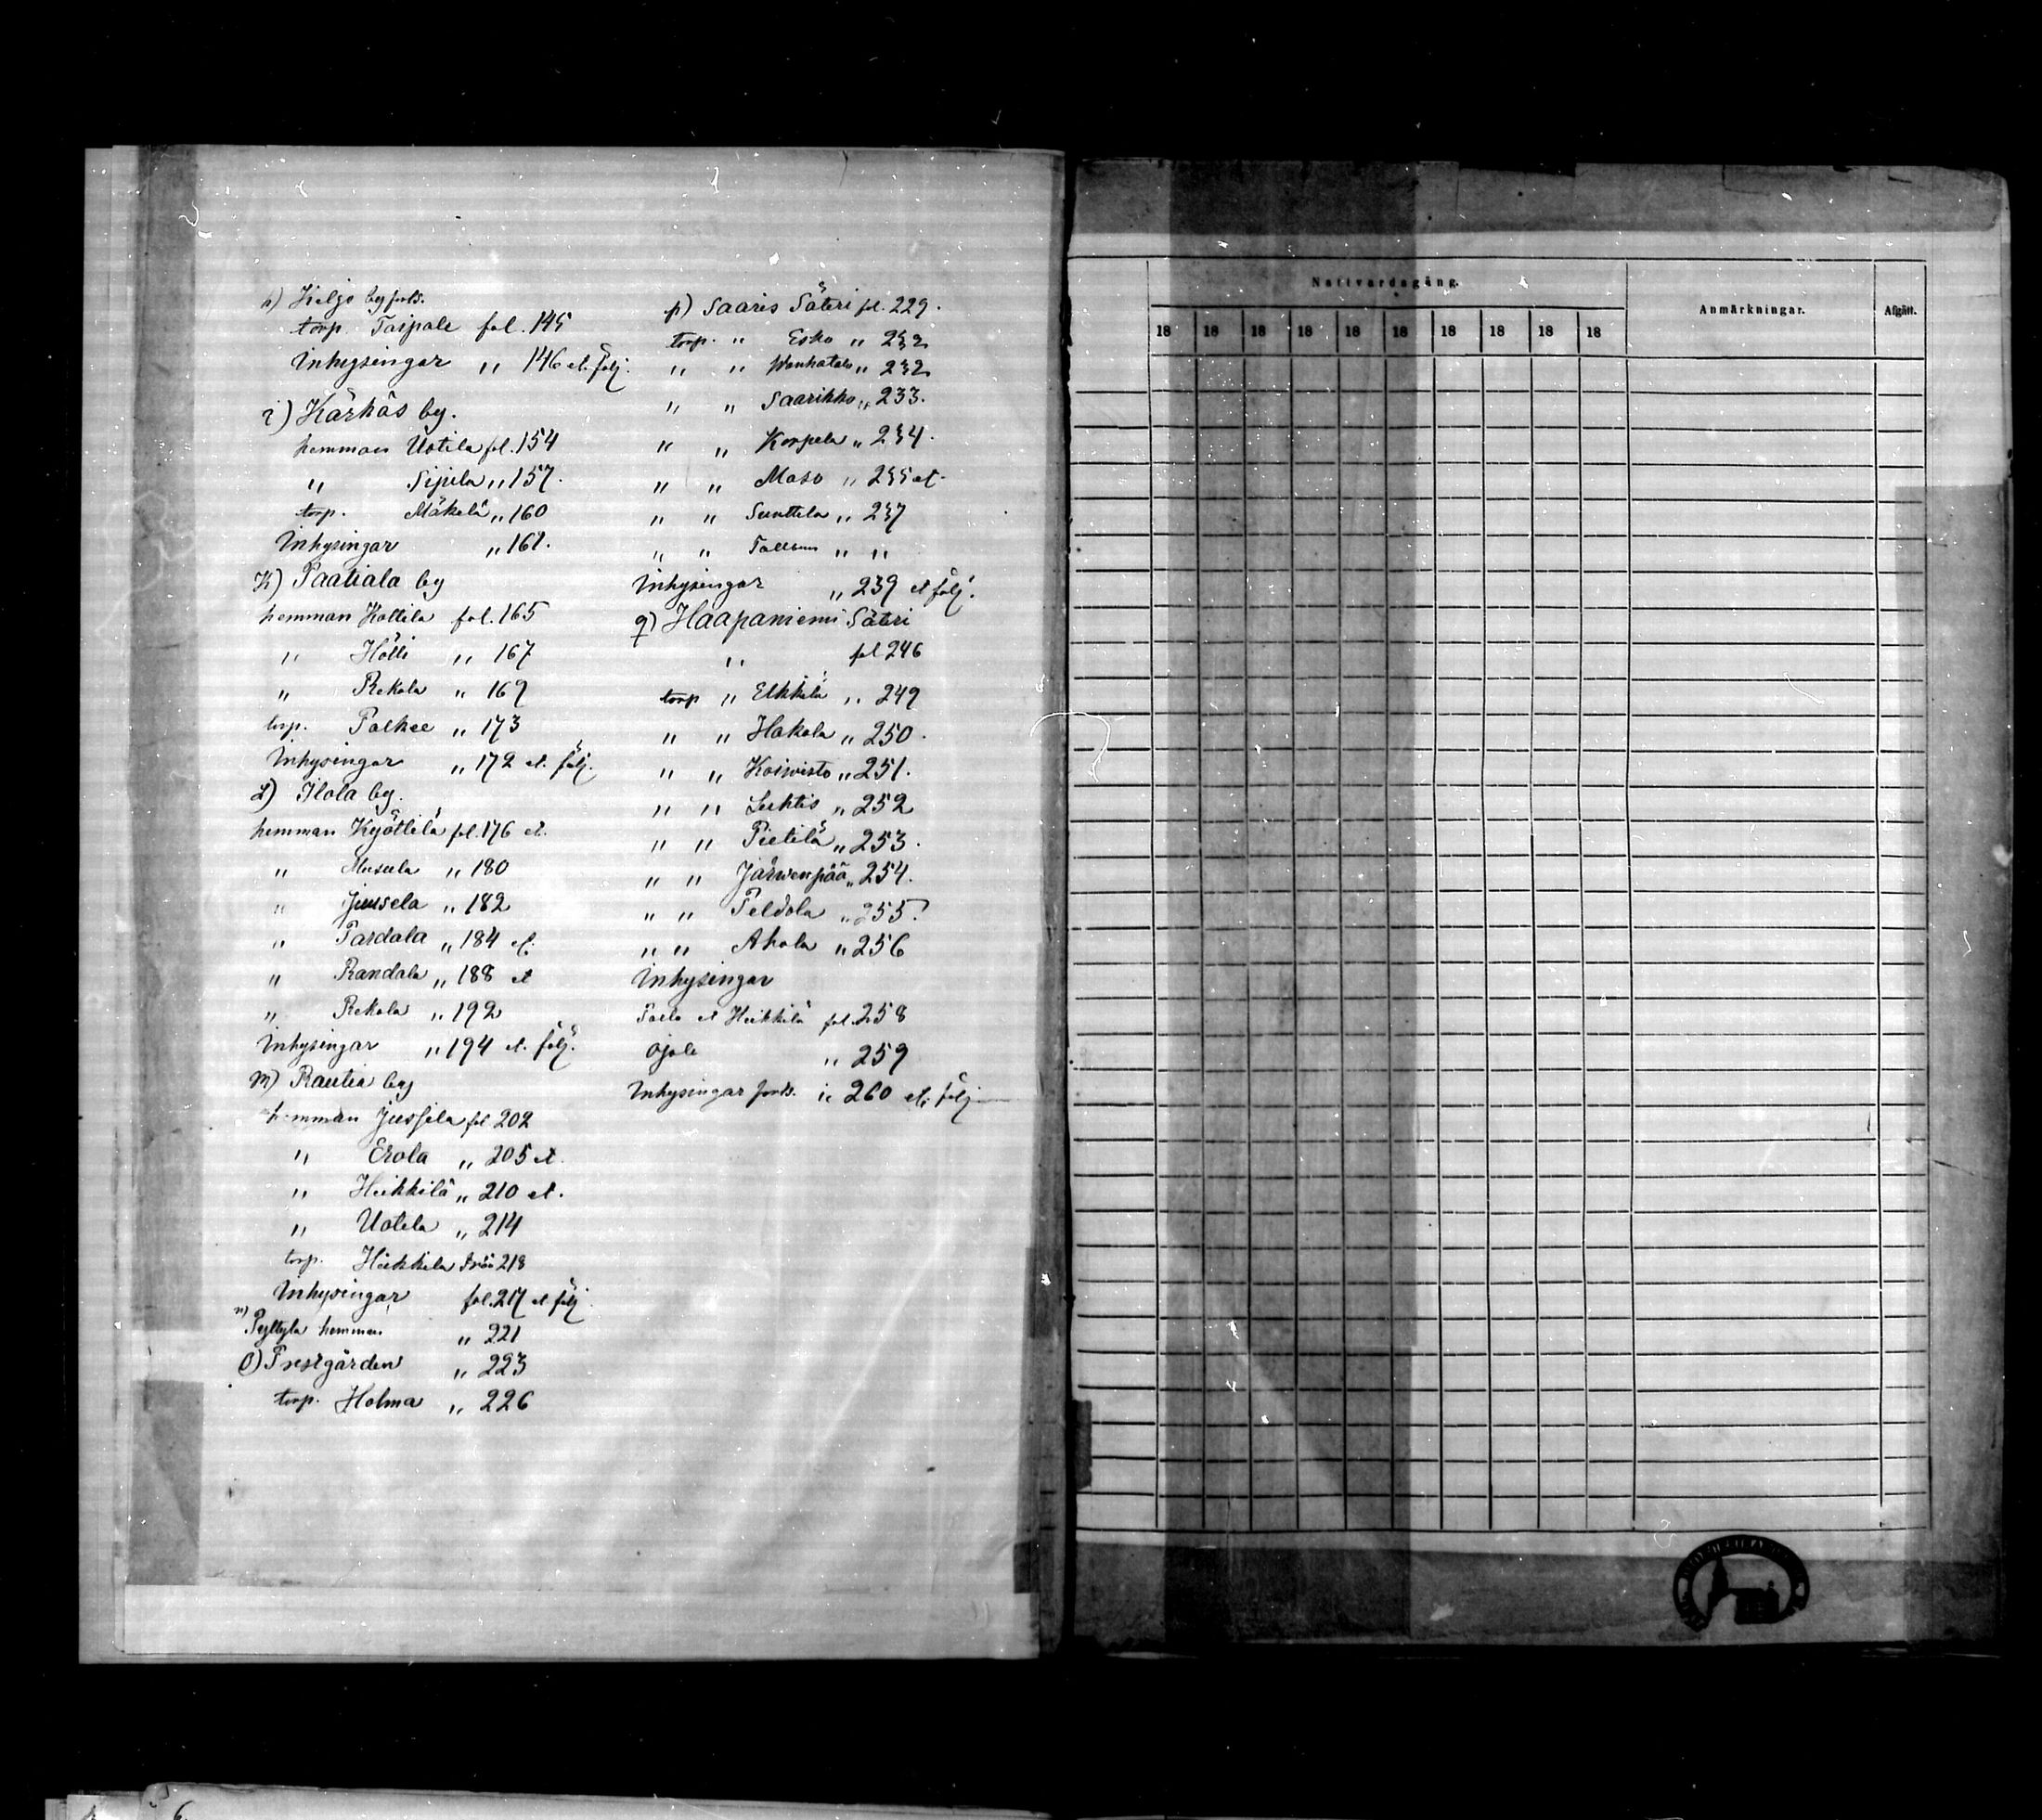 h) Keljo by forts.
torp. Taipale fol. 145
Inhysingar „ 146 et. följ.
i) Kärkäs by.
hemman Uotila fol. 154
„ Sipila „ 157.
torp. Mäkelä „ 160
Inhysingar „ 161.
K) Paatiala by
hemman Kottila fol. 165
„ Hölli „ 167
„ Rekola „ 169
torp. Palkee „ 173
Inhysingar „ 172 et. följ.
L) Ilola by.
hemman Kyöttilä fol. 176 et.
„ Musula „ 180
„ Juusela „ 182
„ Pardala „ 184 et.
„ Randala „ 188 et
„ Rekola „ 192
Inhysingar „ 194 et. följ.
m) Rautia by
hemman Jussila fol 202
„ Erola „ 205 et.
„ Heikkilä „ 210 et.
„ Uotila „ 214
torp. Heikkila 218
Inhysingar fol. 217 et följ.
n) Pyltylä hemman „ 221
O) Prestgården „ 223
torp. Holma „ 226
p) Saaris Säteri fol. 229.
torp. „ Esko „ 232
„ „ Wanhatalo „ 232
„ „ Saarikko „ 233.
„ „ Korpela „ 234.
„ „ Maso „ 235 et.
„ „ Sunttila „ 237
„ „ „ „
Inhysingar „ 239 et följ.
q) Haapaniemi Säteri
„ fol 246
torp „ Eskkilä „ 249
„ „ Hakala „ 250.
„ „ Koiwisto „ 251.
„ „ Lehtis „ 252
„ „ Pietilä „ 253.
„ „ Järwenpää „ 254.
„ „ Peldola „ 255.
„ „ Ahola „ 256
Inhysingar
et Heikkilä fol. 258
Ojala „ 259
Inhysingar forts. „ 260 et. följ
Nattvardsgång.
Anmärkningar.
Afgått.
18 18 18 18 18 18 18 18 18 18